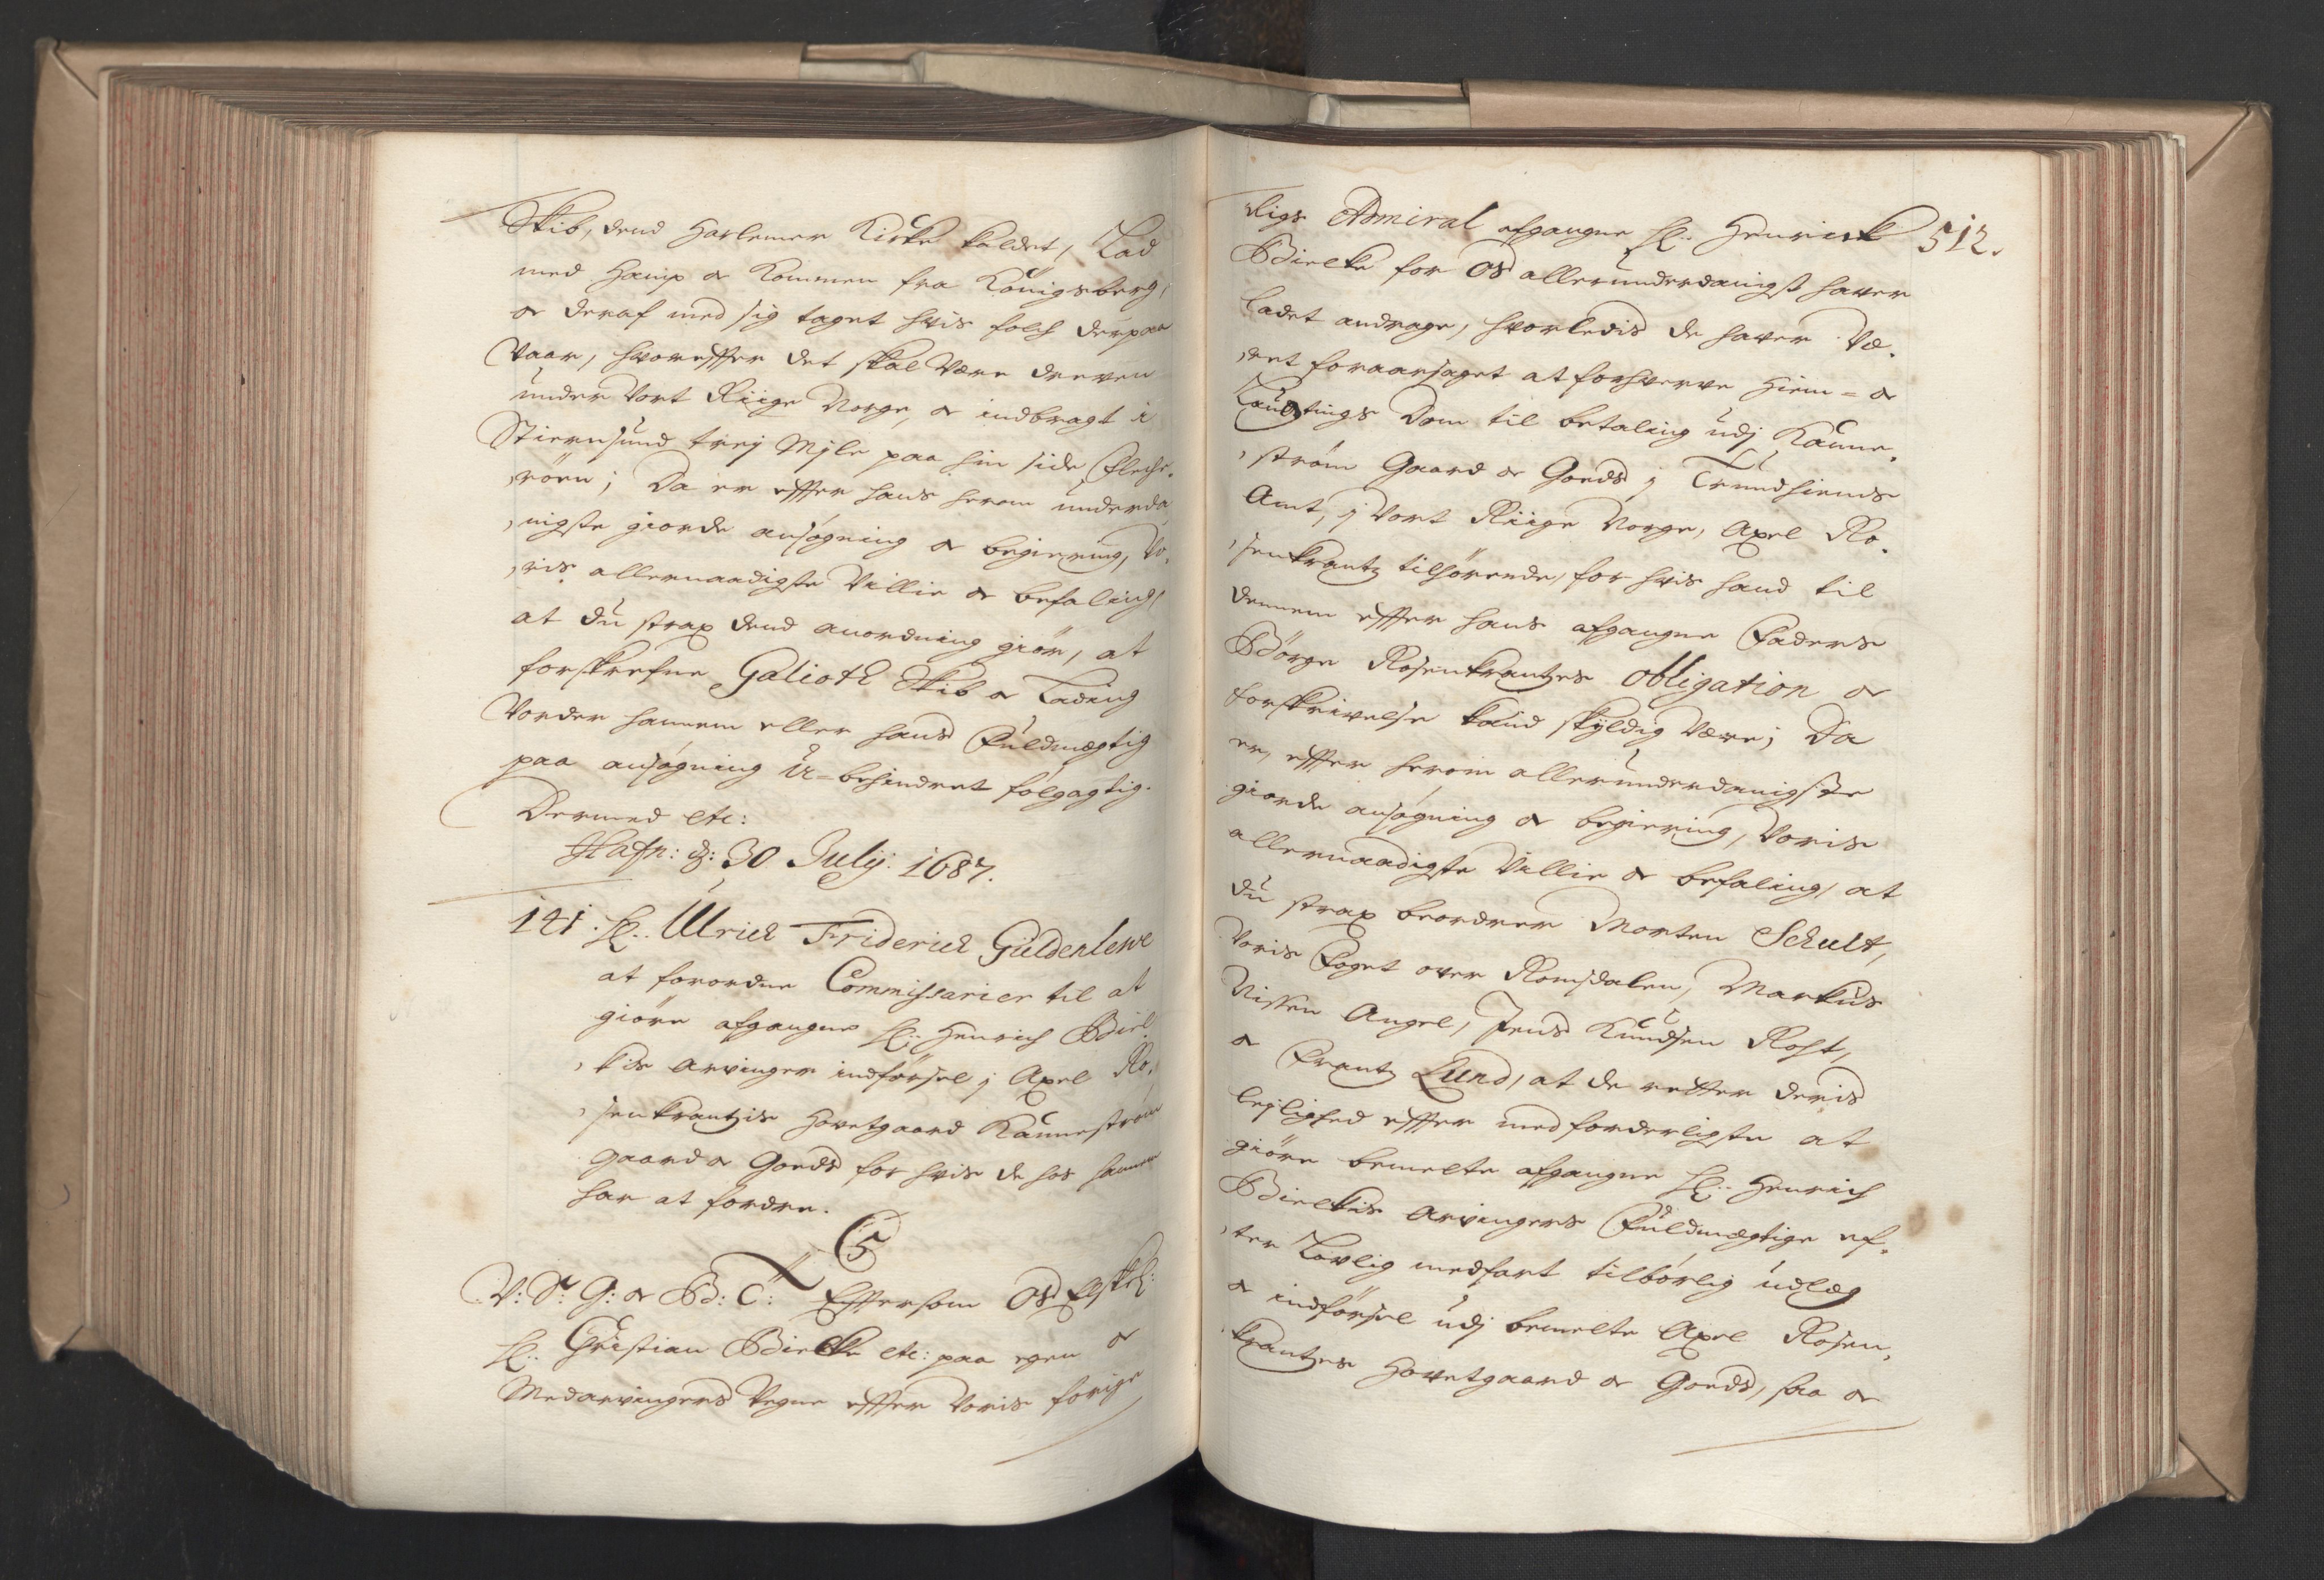 Skib, dend Harlemer Kirke kaldet, Lad
med Hamp oc Kommen fra Königsberg,
oc deraf med sig taget hvis folch derpaa
Vaar, hvoreffter det skal Være dreven
under Vort Riige Norge, oc indbragt i
Stiernsund trej Mijle paa hin side Flecke-
,röen; Da er effter hans herom underda
,nigste giorde ansøgning oc begiering, Vo-
,ris allernaadigste Villie oc befaling,
at du strax dend anordning giör, at
forskrefne Galioth Skib oc Lading
Vorder hannem eller hans Fuldmægtig
paa ansøgning U=behindret følgagtig.
Dermed etc:
Hafn: d: 30 Julij: 1687.
141. H:. Ulrich Friderich Güldenlewe
at forordne Commissarier til at
giöre afgangne H:. Henrich Biel-
,kis Arvinger indförsel j Axel Ro-
,senkrantzis Hovetgaard Kannestrøm
gaard oc Goeds for hvis de hos hannem
har at fordre.
C5
V: Sr: G: oc Bd: C: Efftersom Os Elskel:
H:. Christian Bielke etc: paa egen oc
Medarvingers Vegne effter Voris forige
Rigs Admiral afgangne H:. Henrick 512.
Bielke for Os allerunderdanigst haver
ladet andrage, hvorledis de haver Væ-
,ret foraarsaget at forhverve Hiem= oc
Laugtings Dom til betaling udj Kanne-
,strøm Gaard oc Goeds j Trundhiems
Amt, j Vort Riige Norge, Axel Ro-
,senkrantz tilhörende, for hvis hand til
dennem effter hans afgangne Faders
Börge Rosenkrantzes Obligation oc
forskrivelse kand skyldig Være; Da
er, effter herom allerunderdanigste
giorde ansøgning oc begiering, Voris
allernaadigste Villie oc befaling, at
du strax beordrer Morten Schult,
Voris Foget over Romsdalen, Markus
Nissen Angel, Jens Knudsen Rost,
oc Frantz Lund, at de retter deris
lejlighed effter med forderligste at
giöre bemelte afgangne H:. Henrich
Bielkis Arvingers Fuldmægtige ef-
,ter Lovlig medfart tilbörlig udlæg
oc indförsel udj bemelte Axel Rosen-
krantzes Hovetgaard oc Goeds, saa oc